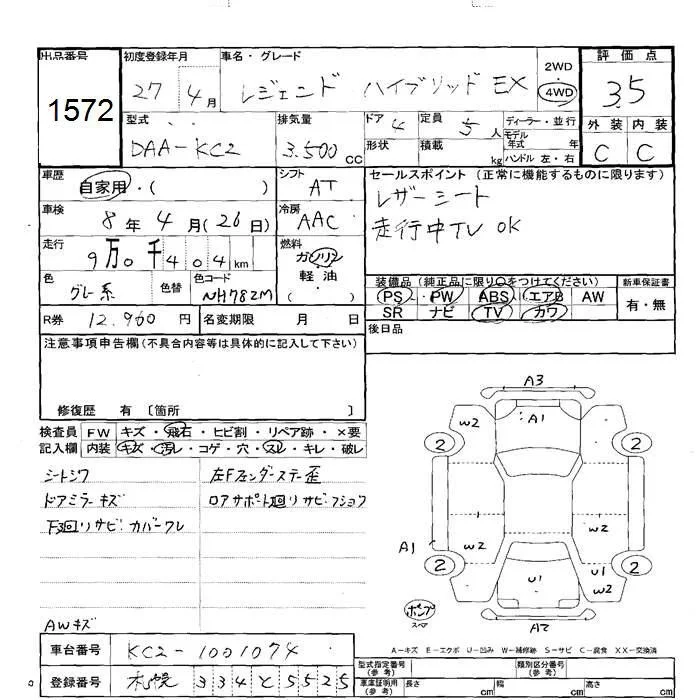 出品番号 初度登録年月 車名・グレード 2WD 評価点
1572 27 4月 レジェンド ハイブリッド EX 4WD 3.5
型式 排気量 ドア 定員 ディーラー・並行 外装 内装
DAA-KC2 3.500cc 4 5人 モデル年式 年 C C
形状 積載 kg ハンドル 左・右
車歴 シフト セールスポイント (正常に機能するものに限ります)
自家用・( ) AT レザーシート
車検 8年4月(26日) 冷房 AAC 走行中TV OK
走行 9万0千404km 燃料 ガソリン
軽油
( )
色 グレー系 色替 色コード NH782M
装備品 (純正品に限り○をつけてください) 新車保証書
PS・PW ABS エアB AW 有・無
SR ナビ TV カワ
R券 12.960円 名変期限 月 日 後日品
注意事項申告欄(不具合内容等は具体的に記入して下さい)
修復歴 有 [箇所 ]
検査員 FW キズ・飛石・ヒビ割・リペア跡・×要
記入欄 内装 キズ・汚レ・コゲ・穴・スレ・キレ・破レ
シートシワ 左Fフェンダーステー歪
ドアミラーキズ ロアサポート廻リサビ・フショク
下廻リサビ・カバーワレ
AWキズ
A3
A1
W2 W2
2 2
W2 W2
A1
2 2
U1 U1
W2
ポンプ
スペア
A2
A-キズ E-エクボ U-凹み W-補修跡 S-サビ C-腐食 XX-交換済
車台番号 KC2-1001074
登録番号 札幌 334 と 5525
型式指定番号(参考) 類別区分番号(参考)
車庫証明用(参考) 長さ cm 幅 cm 高さ cm